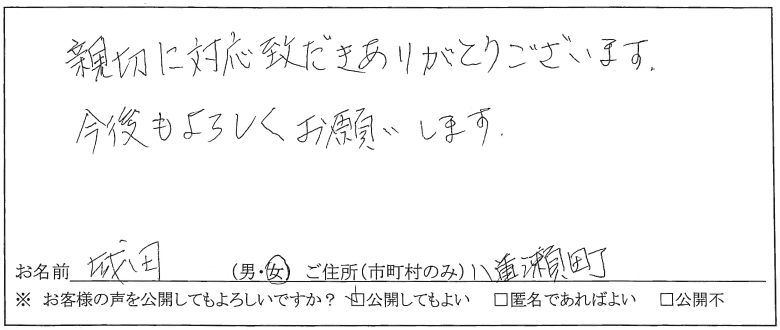 親切に対応致だきありがとうございます.
今後もよろしくお願いします.
お名前 城田 (男・女) ご住所(市町村のみ) 八重瀬町
※ お客様の声を公開してもよろしいですか? □公開してもよい □匿名であればよい □公開不